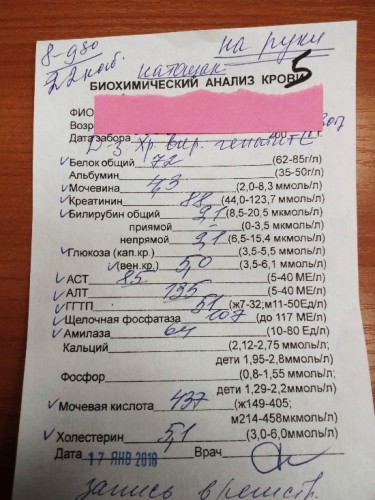 8-930
22 каб.
на руки
натощак
5
БИОХИМИЧЕСКИЙ АНАЛИЗ КРОВИ
ФИО
Возр
Дата забора 200 г
Д-з Хр. вир. гепатит С
✓Белок общий 72 (62-85г/л)
Альбумин (35-50г/л)
✓Мочевина 4,3 (2,0-8,3 ммоль/л)
✓Креатинин 88 (44,0-123,7 ммоль/л)
✓Билирубин общий 9,1 (8,5-20,5 мкмоль/л)
приямой (0-3,5 мкмоль/л)
непрямой 9,1 (6,5-15,4 мкмоль/л)
✓Глюкоза (кап.кр.) (3,5-5,5 ммоль/л)
✓(вен.кр.) 5,0 (3,5-6,1 ммоль/л)
✓АСТ 85 (5-40 МЕ/л)
✓АЛТ 135 (5-40 МЕ/л)
✓ГГТП 51 (ж7-32;м11-50Ед/л)
✓Щелочная фосфатаза 107 (до 117 МЕ/л)
✓Амилаза 64 (10-80 Ед/л)
Кальций (2,12-2,75 ммоль/л;
дети 1,95-2,8ммоль/л)
Фосфор (0,8-1,55 ммоль/л;
дети 1,29-2,2ммоль/л)
✓Мочевая кислота 437 (ж149-405;
м214-458мкмоль/л)
✓Холестерин 5,1 (3,0-6,0ммоль/л)
Дата 17 ЯНВ 2018 Врач
запись в регистр